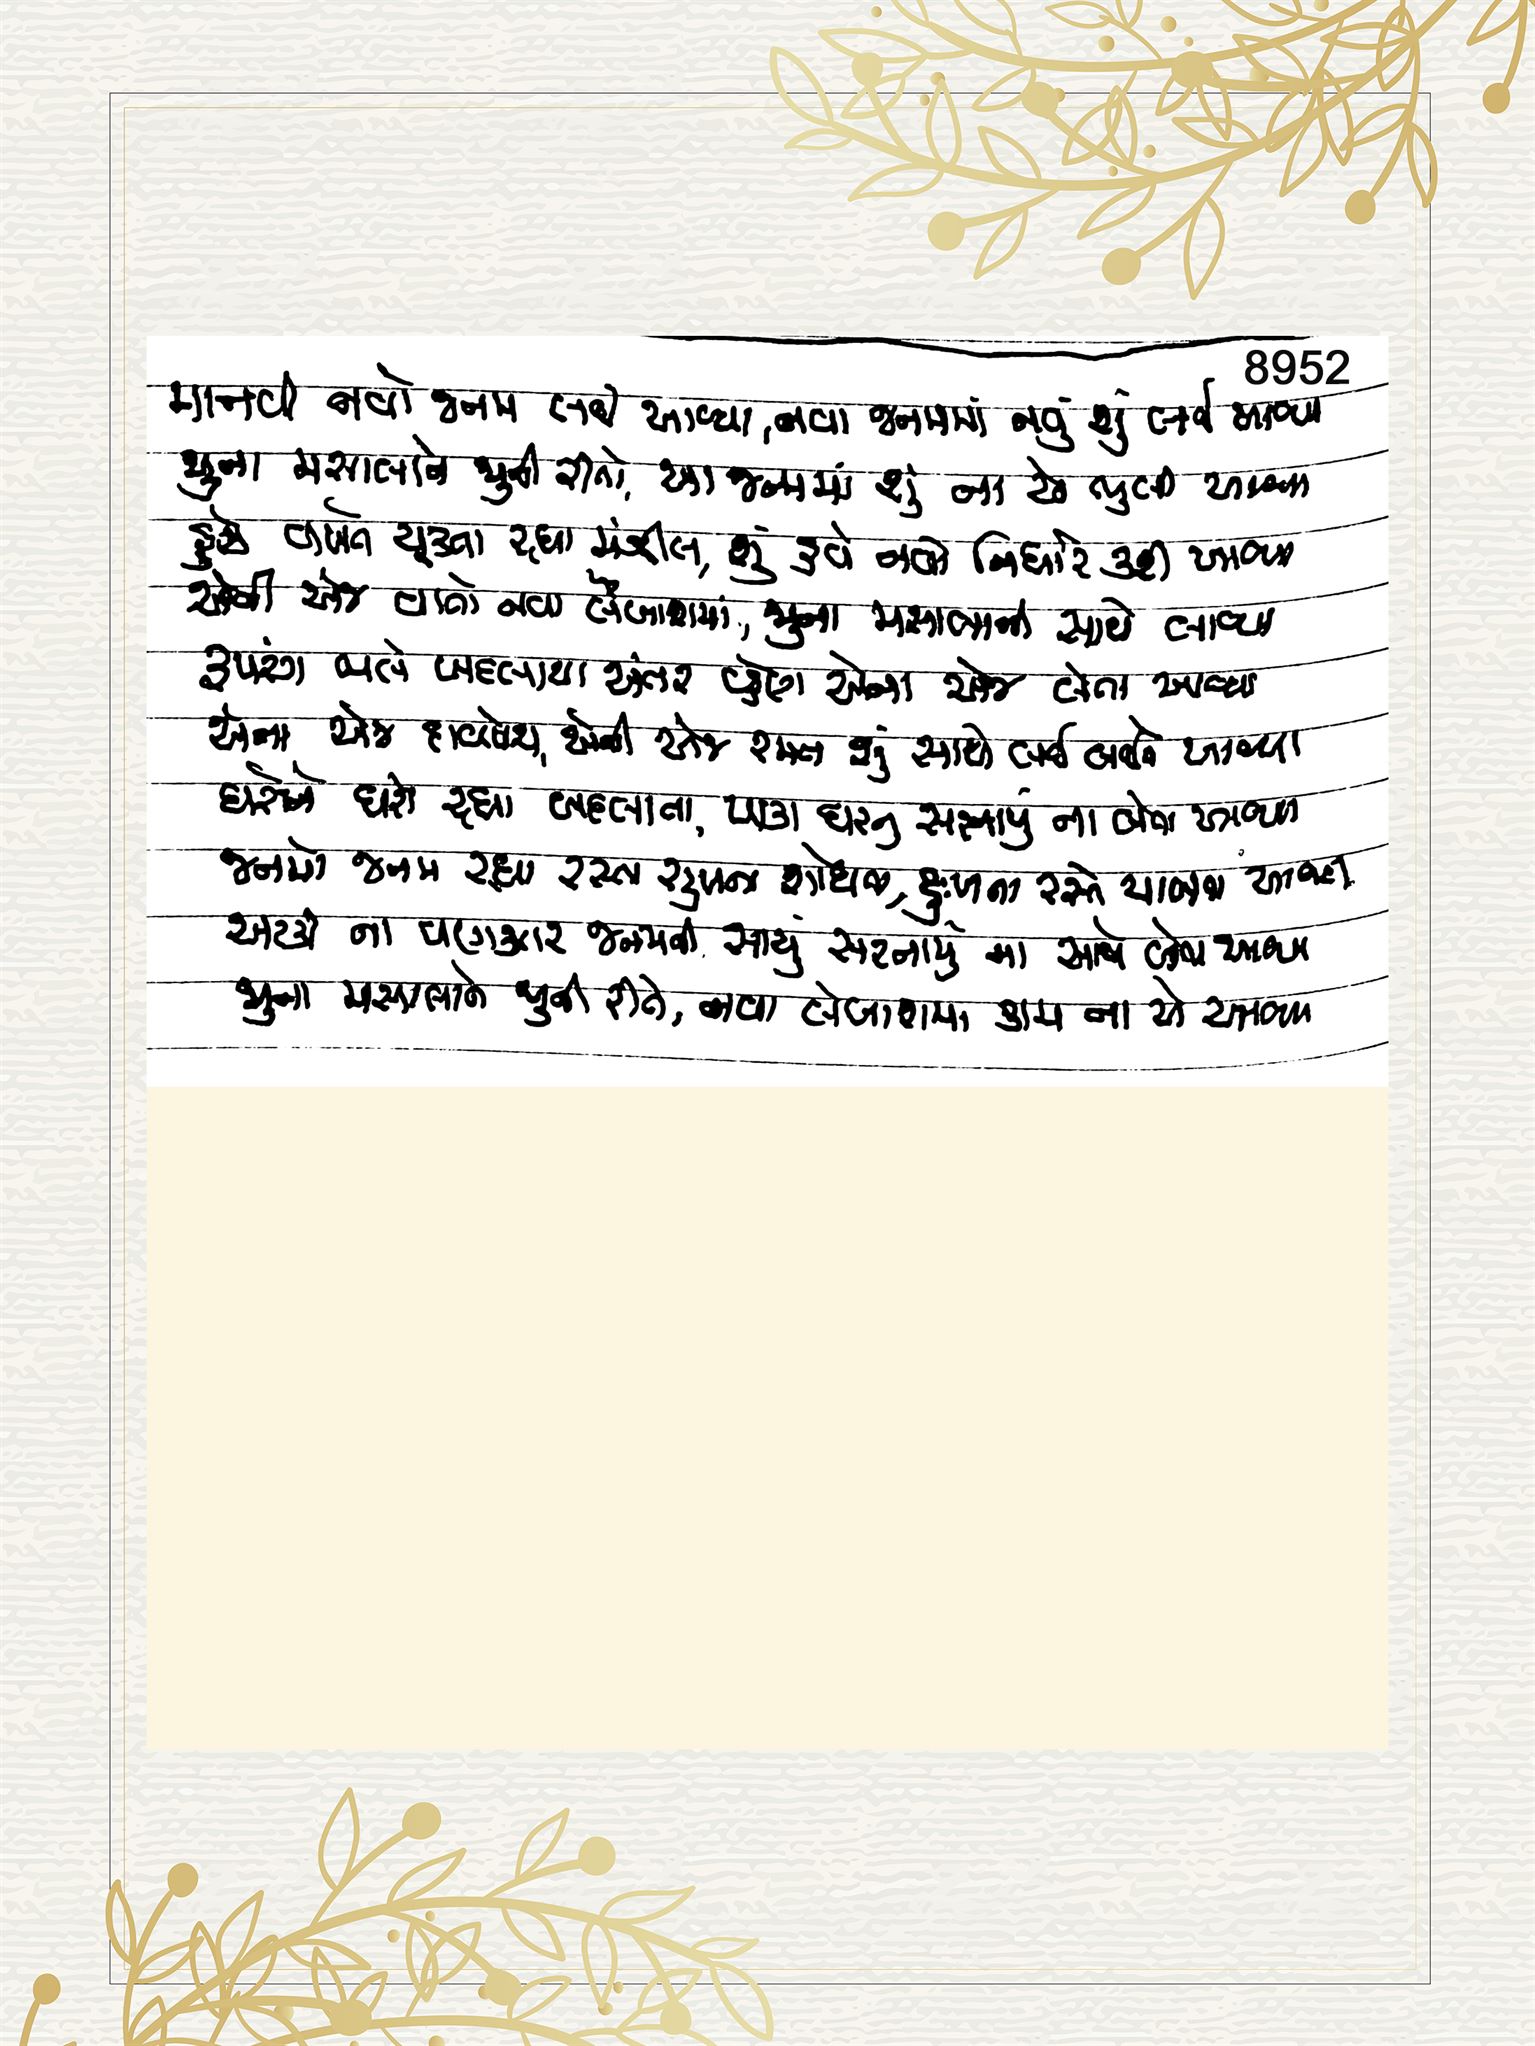 8952
માનવી નવો જનમ લઈ આવ્યા, નવા જનમમાં નવું શું લઈ આવ્યા
જુના મસાલાને જુની રીતો, આ જનમમાં શું ના એ ભુલી આવ્યા
વખતે ચૂક્તા રહ્યા મંઝીલ, શું હવે નવો નિર્ધાર કરી આવ્યા
એની એજ વાતો નવા લેબાશમાં, જુના મસાલાની સાથે લાવ્યા
રૂપરંગ ભલે બદલાયા અંતર એના એજ લેતા આવ્યા
એના એજ દાવપેચ, એની એજ રમત શું સાથે લઈ લઈને આવ્યા
ઘરેને ઘરો રહ્યા બદલાતા, પાકા ઘરનુ સરનામું ના લેવા આવ્યા
જનમો જનમ રહ્યા રસ્તા સુખના શોધવા, દુઃખના રસ્તે ચાલવા આવ્યા
અટકી ના વણઝાર જનમની સાચું સરનામું ના સાથે લેવા આવ્યા
જુના મસાલાને જુની રીતે, નવા લેબાશમાં કામ ના એ આવ્યા